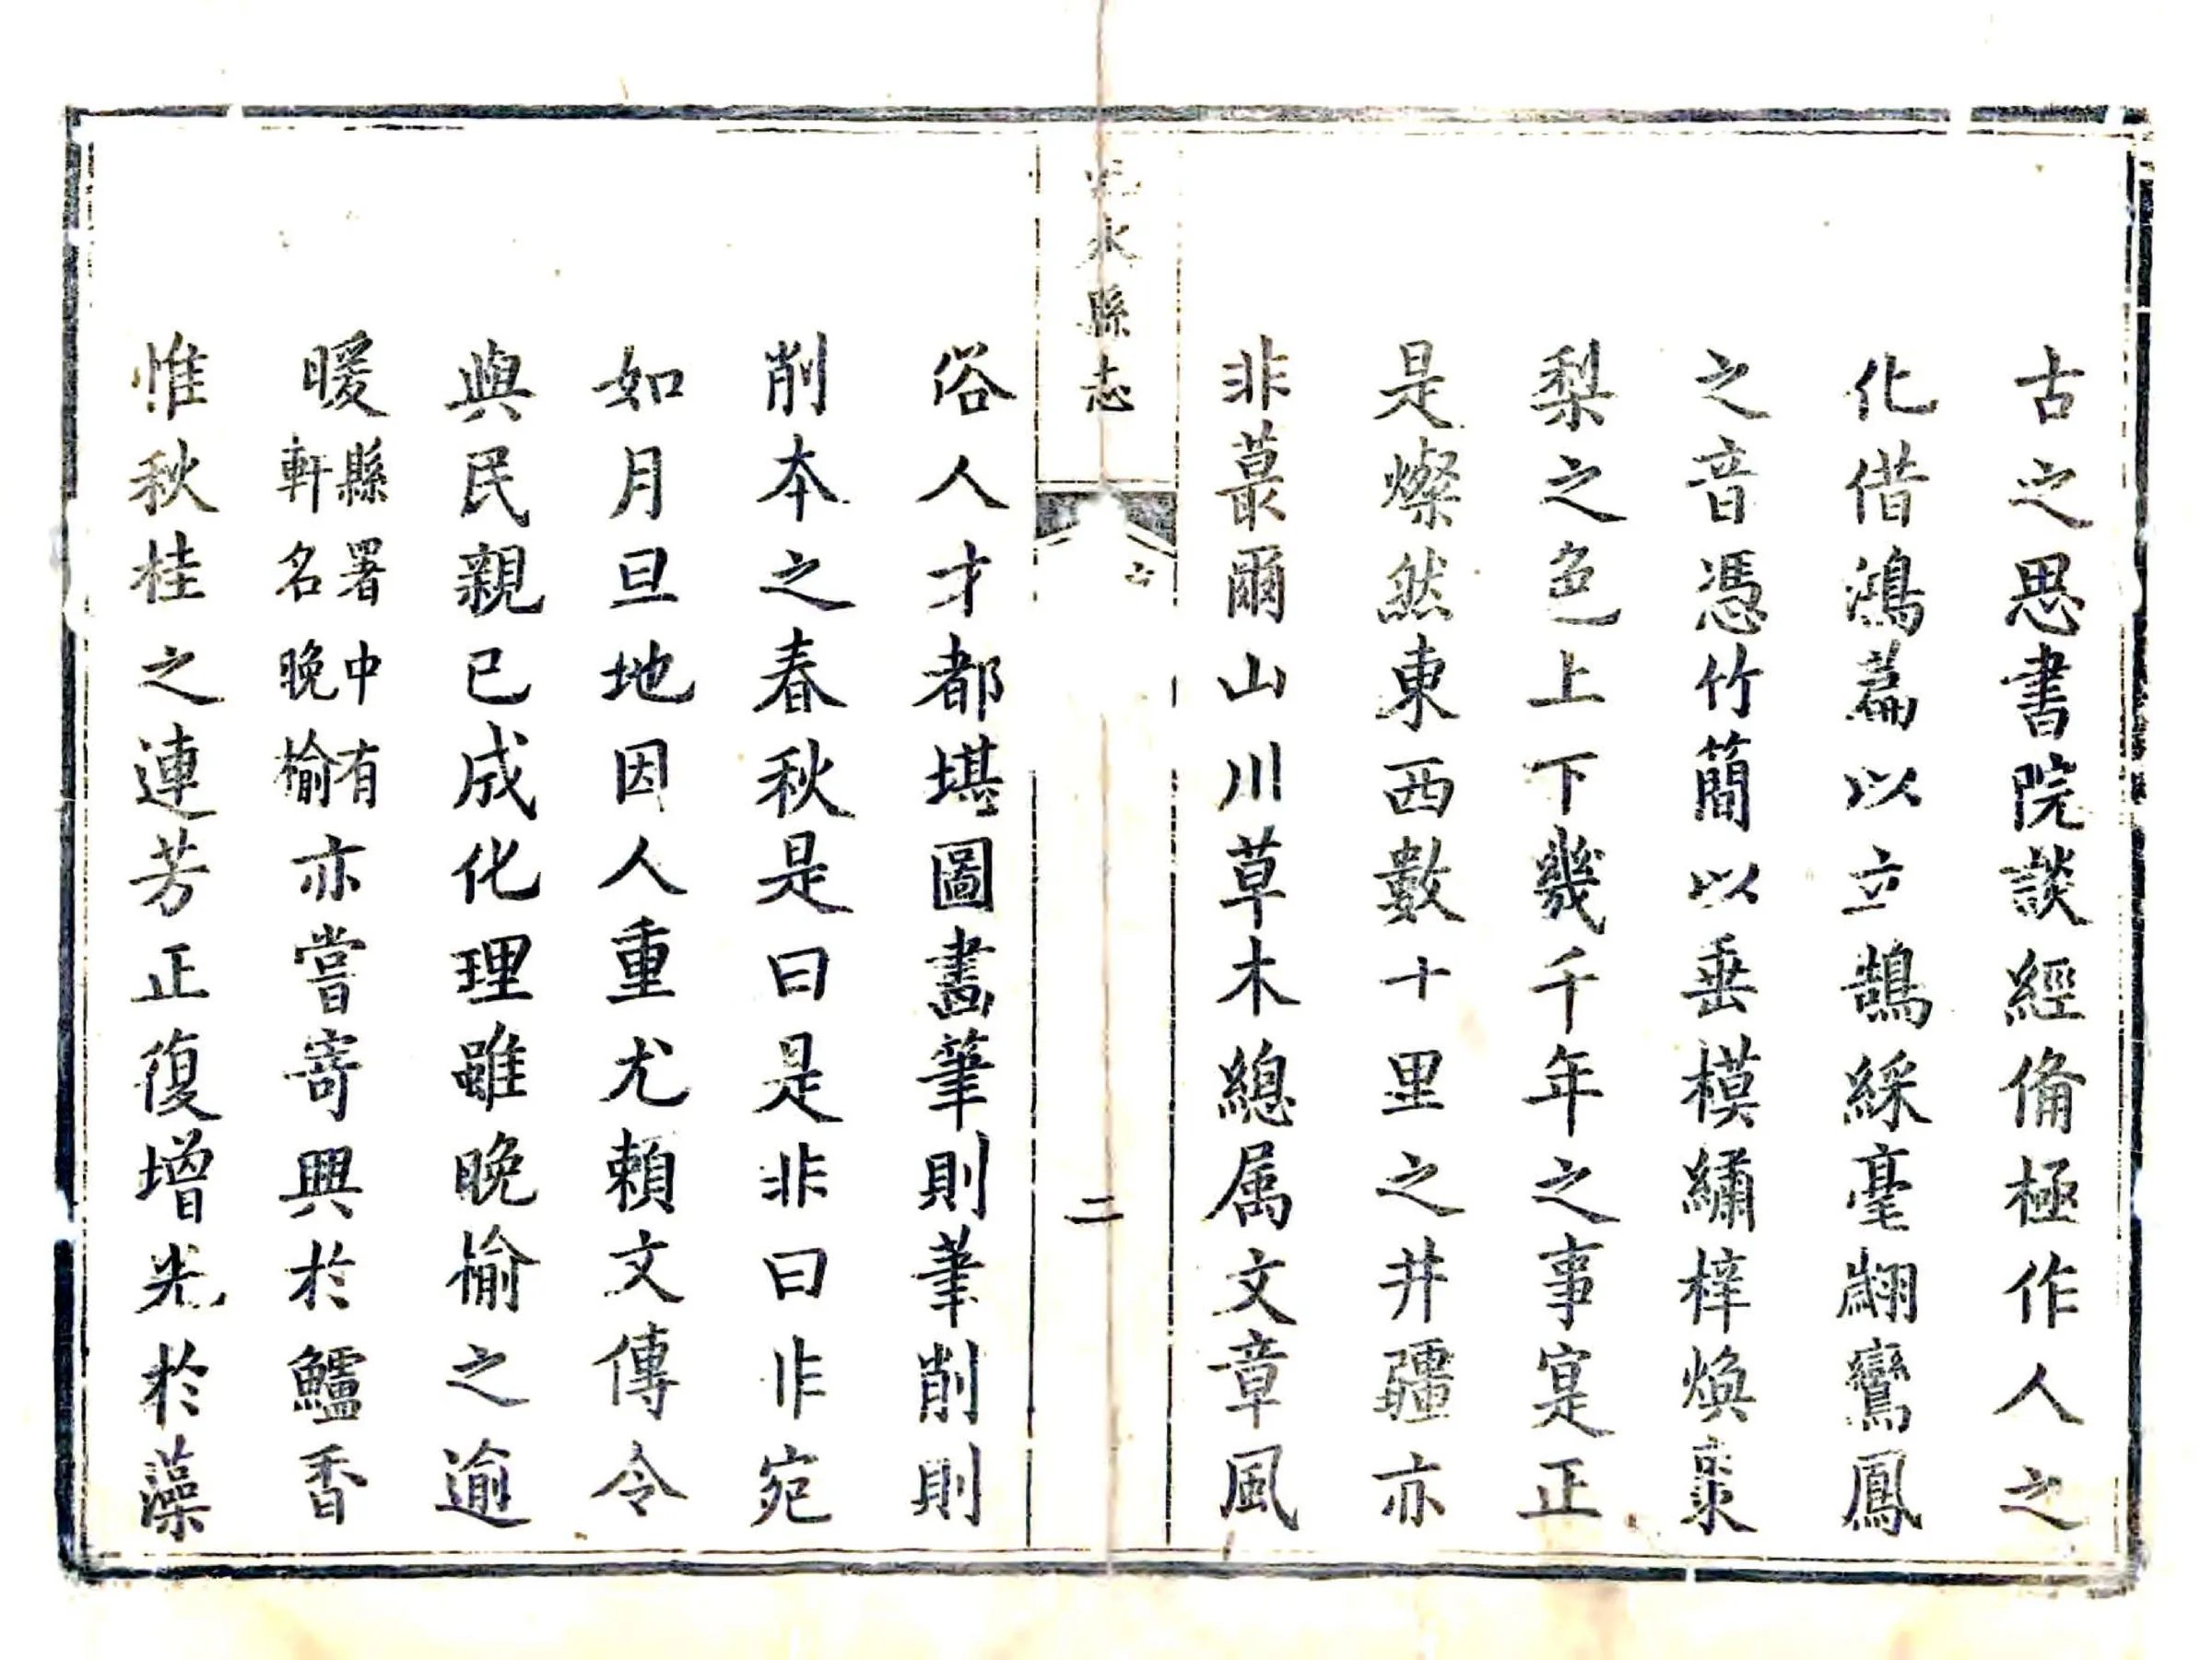 古之思書院談經俻極作人之
化借鴻篇以立鵠綵毫翽鸞鳳
之音憑竹簡以垂模繡梓煥棗
梨之色上下幾千年之事寔正
是燦然東西數十里之井疆亦
非蕞爾山川草木總属文章風
水縣志
二
俗人才都堪圖畫筆則筆削則
削本之春秋是曰是非曰非宛
如月旦地因人重尤賴文傳令
與民親已成化理雖晚榆之逾
暖縣署中有軒名晚榆亦嘗寄興於鱸香
惟秋桂之連芳正復增光於藻